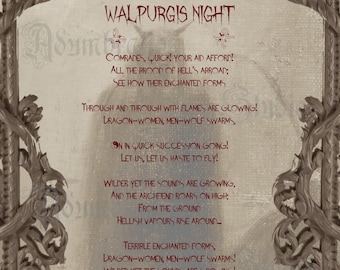 Adumb
WALPURGIS NIGHT
Comrades, quick! your aid afford!
All the brood of hell's abroad:
See how their enchanted forms
Through and through with flames are glowing!
Dragon-women, men-wolf swarms,
On in quick succession going!
Let us, let us haste to fly!
Wilder yet the sounds are growing,
And the archfiend roars on high;
From the ground
Hellish vapours rise around...
Terrible enchanted forms,
Dragon-women, men-wolf swarms!
Wilder yet the sounds are growing